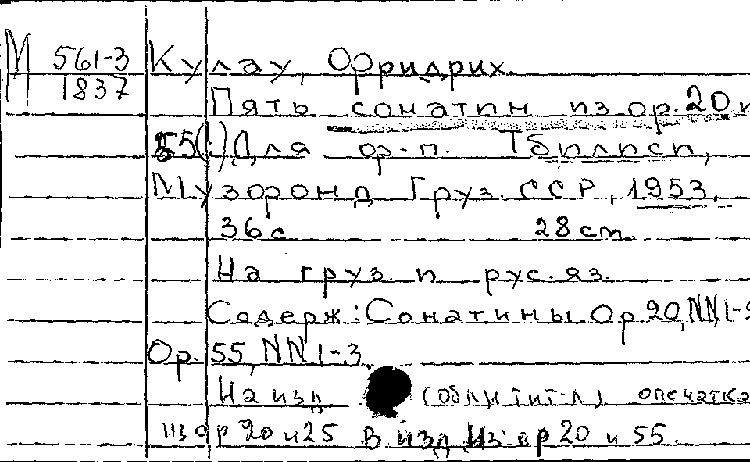 М 561-3
1837
Кулау, Фридрих.
Пять сонатин из ор. 20 и
55(.) Для ф.-п. Тбилиси,
Музфонд Груз. ССР, 1953.
36 с 28 cm
На груз и рус. яз.
Содерж: Сонатины Ор 20, NN 1-
Ор. 55, NN 1-3
На изд (обл и тит-л) опечатка
из ор 20 и 25 В изд. из ор 20 и 55.